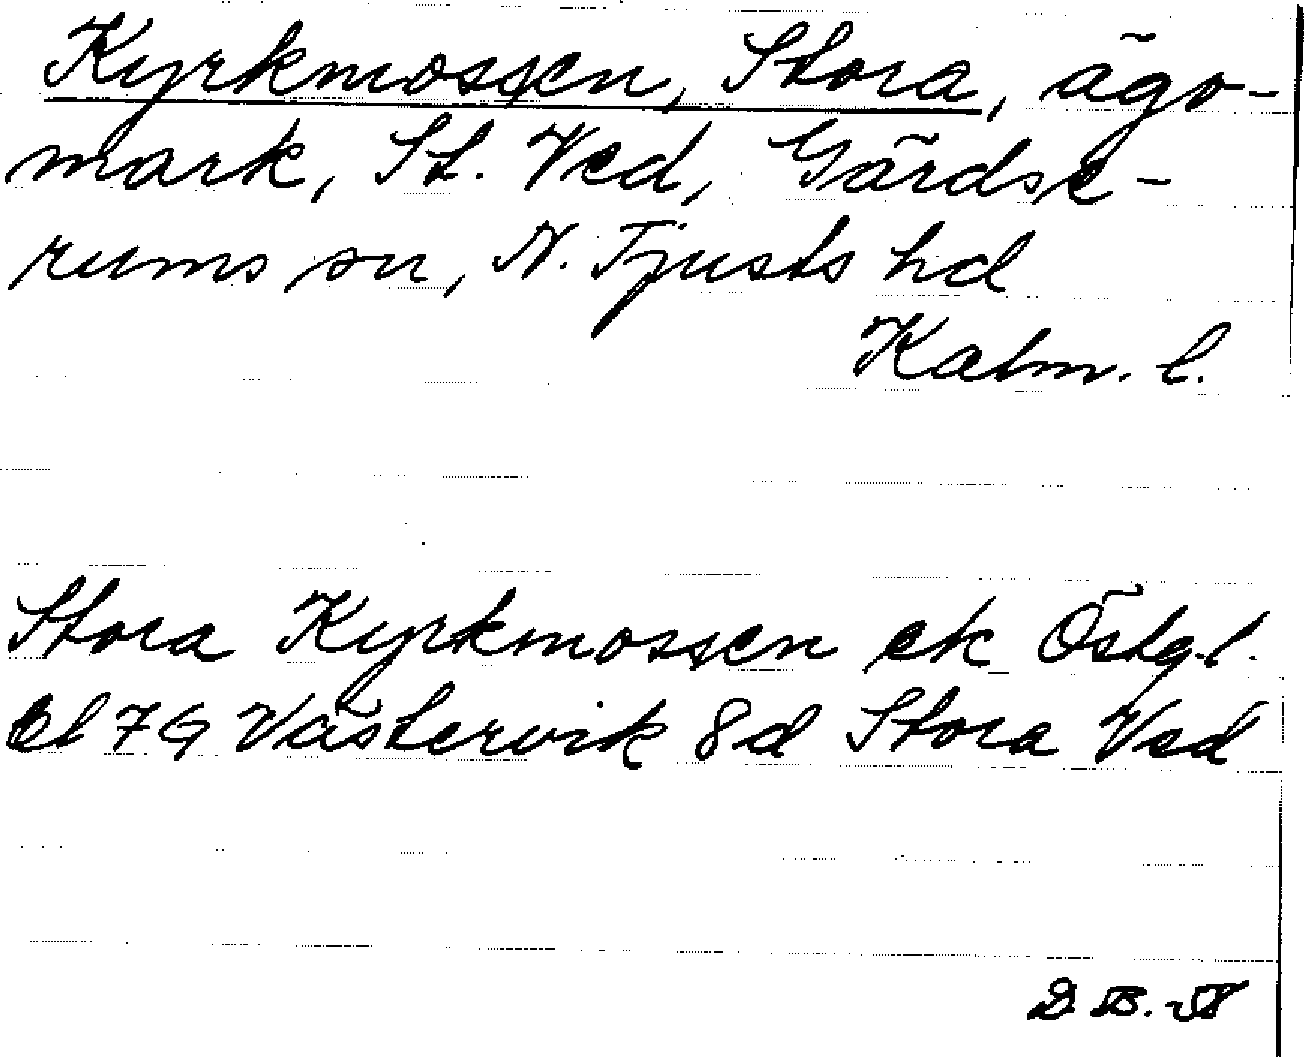 Kyrkmossen, Stora, ägo-
mark, St. Ved, Gärdse-
rums sn, N. Tjusts hd
Kalm. l.
Stora Kyrkmossen ek Östg. l.
bl 7G Västervik 8d Stora Ved